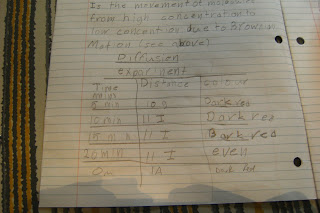 Is the movement of molecules
from high concentration to
low concention due to Brownian
Motion (see above)
Diffusion
experiment
Time Distance colour
5 min 10 g Dark red
10 min 11 I Dark red
15 min 11 I Dark red
20 min 11 I even
0m 1A